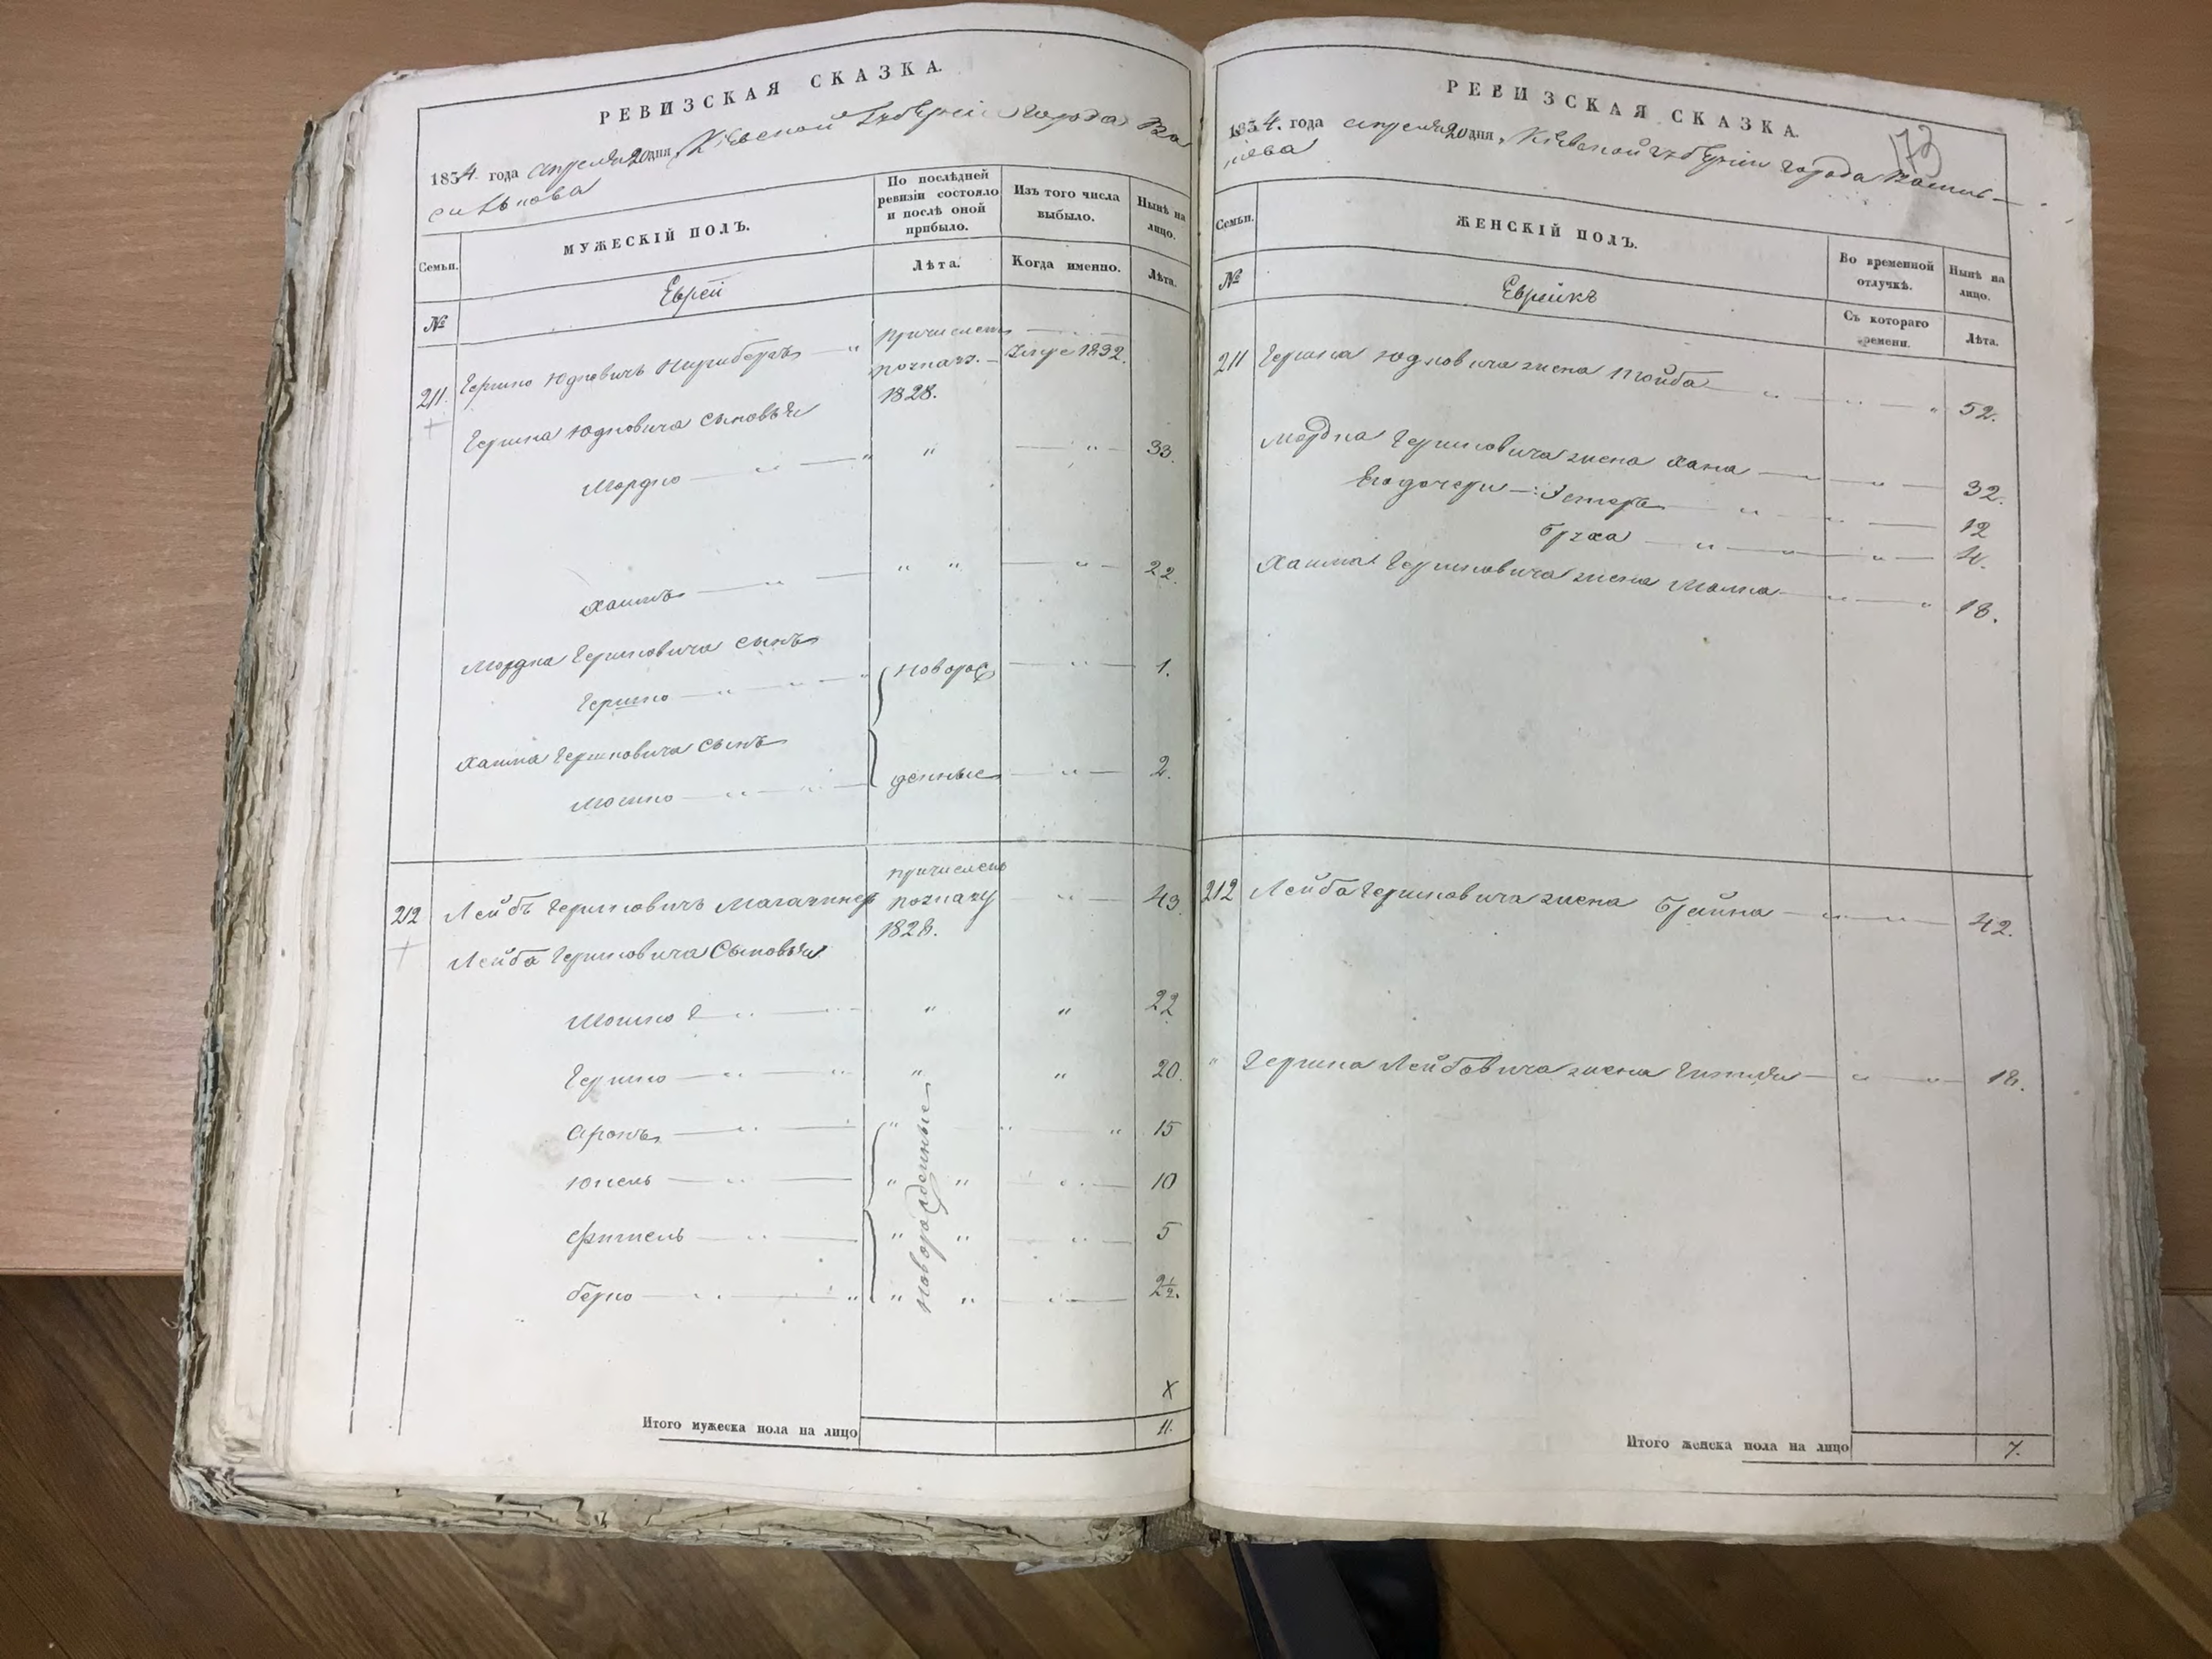 РЕВИЗСКАЯ СКАЗКА.
1834 года апреля 20 дня, Кіевской Губерніи города Ва
силькова
Семьи.
МУЖЕСКІЙ ПОЛЪ.
По послѣдней ревизіи состояло и послѣ оной прибыло.
Изъ того числа выбыло.
Нынѣ на лицо.
№
Еврей
Лѣта.
Когда именно.
Лѣта.
211. Гершко Юдковичъ причисленъ 1832.
по указ. 1828.
Гершка Юдковича сыновья
Мордко " " 33.
Хаимъ " " " 22.
Мордка Гершковича сынъ
Гершко новорож 1.
Хаима Гершковича сынъ
Мошко денные 2.
212 Лейбъ Гершковичъ причисленъ 43.
по указу
1828.
Лейба Гершковича Сыновья
Мошко " " 22
Гершко " " 20.
Аронъ " " 15
Юкель " " 10
Фишель " " 5
Берко " " 2½.
новорожденные
X
Итого мужеска пола на лицо 11.
РЕВИЗСКАЯ СКАЗКА.
173
1834. года апреля 20 дня, Кіевской губерніи города Василь-
кова
Семьи.
ЖЕНСКІЙ ПОЛЪ.
Во временной отлучкѣ.
Нынѣ на лицо.
№
Еврейкъ
Съ котораго времени.
Лѣта.
211 Гершка Юдковича жена Тойба 52.
Мордка Гершковича жена Хана 32.
Его дочери: Эстеръ 12
Бруха 4.
Хаима Гершковича жена Малка 18.
212 Лейба Гершковича жена Брайна 42.
" Гершка Лейбовича жена 18.
Итого женска пола на лицо 7.